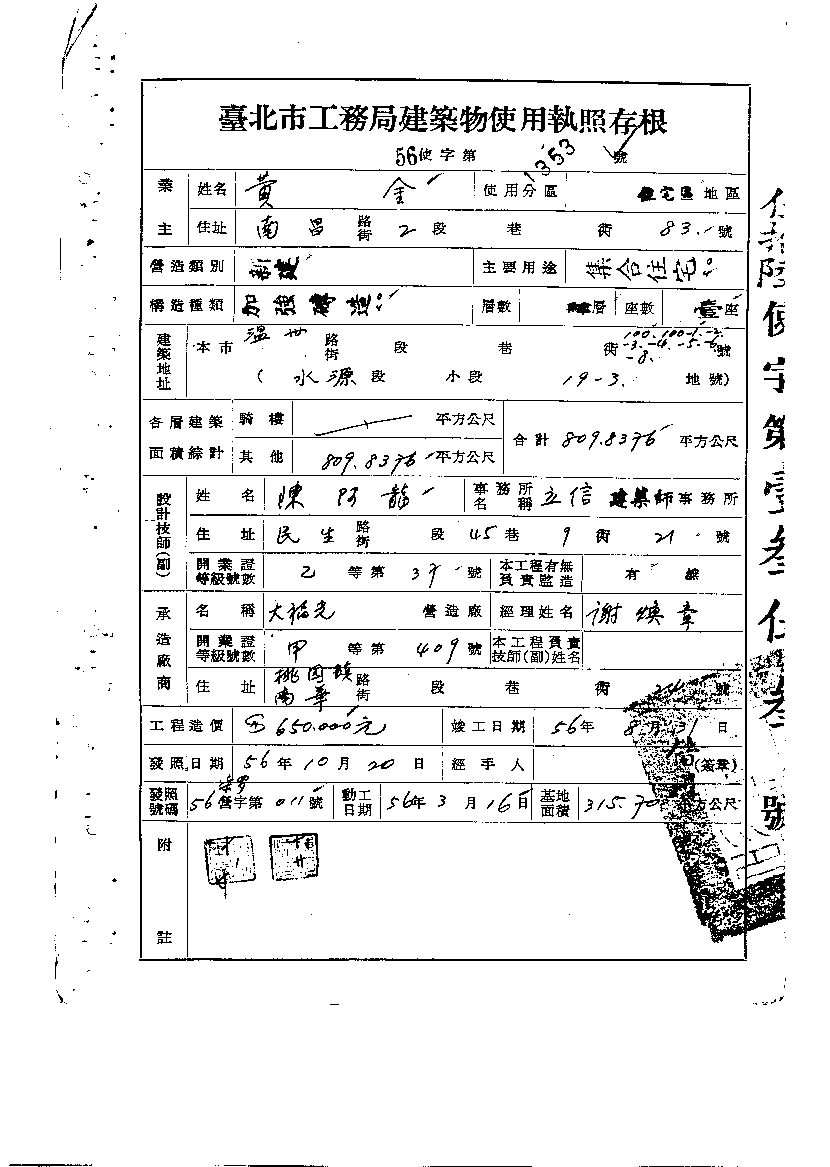 臺北市工務局建築物使用執照存根
56使字第 1353 號
業主 姓名 黃 金 使用分區 住宅區地區
住址 南昌 路街 2 段 巷 街 83 號
營造類別 新建 主要用途 集合住宅
構造種類 加強磚造 層數 層 座數 壹座
建築地址 本市 溫州 路街 段 巷 街 100.100-1.-2 -3.-4.-5.-6 -8. 號
( 水源 段 小段 19-3. 地號)
各層建築面積綜計 騎樓 平方公尺 合計 809.8376 平方公尺
其他 809.8376 平方公尺
設計技師(副) 姓名 陳阿龍 事務所名稱 立信 建築師事務所
住址 民生 路街 段 45 巷 9 街 21 號
開業證等級號數 乙 等第 37 號 本工程有無負責監造 有
承造廠商 名稱 大福光 營造廠 經理姓名 謝煥章
開業證等級號數 甲 等第 409 號 本工程負責技師(副)姓名
住址 桃園鎮南華 路街 段 巷 街 號
工程造價 650.000元 竣工日期 56年 8月31日
發照日期 56年10月20日 經手人 (簽章)
發照號碼 56營字第 011 號 動工日期 56年3月16日 基地面積 315.70 平方公尺
附註
使字第壹叁 號